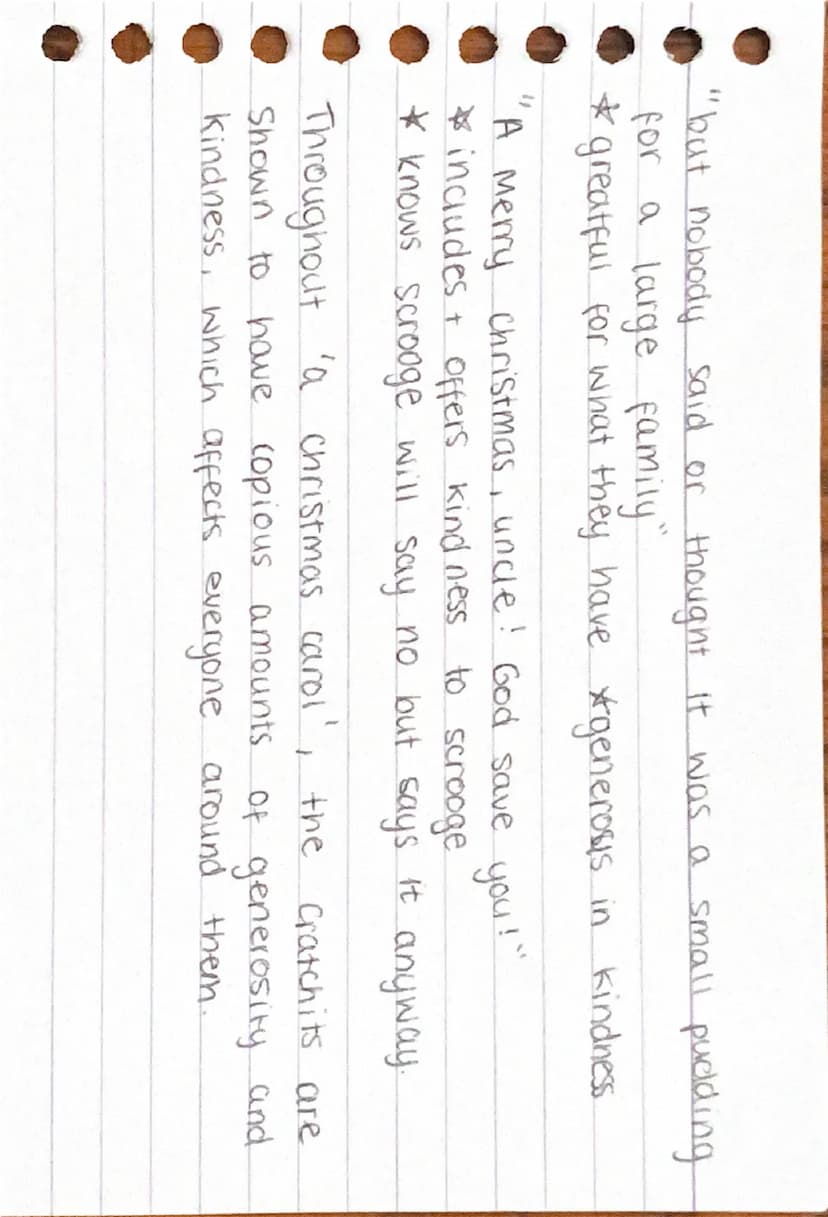 "but nobody said or thought it was a small pudding
for a large family"
* greatful for what they have * generosis in kindness
"A Merry christmas, uncle! God save you!"
* includes + offers kindness to scrooge
* knows scrooge will say no but says it anyway.
Throughout 'a christmas carol', the cratchits are
shown to have copious amounts of generosity and
kindness, which affects everyone around them.